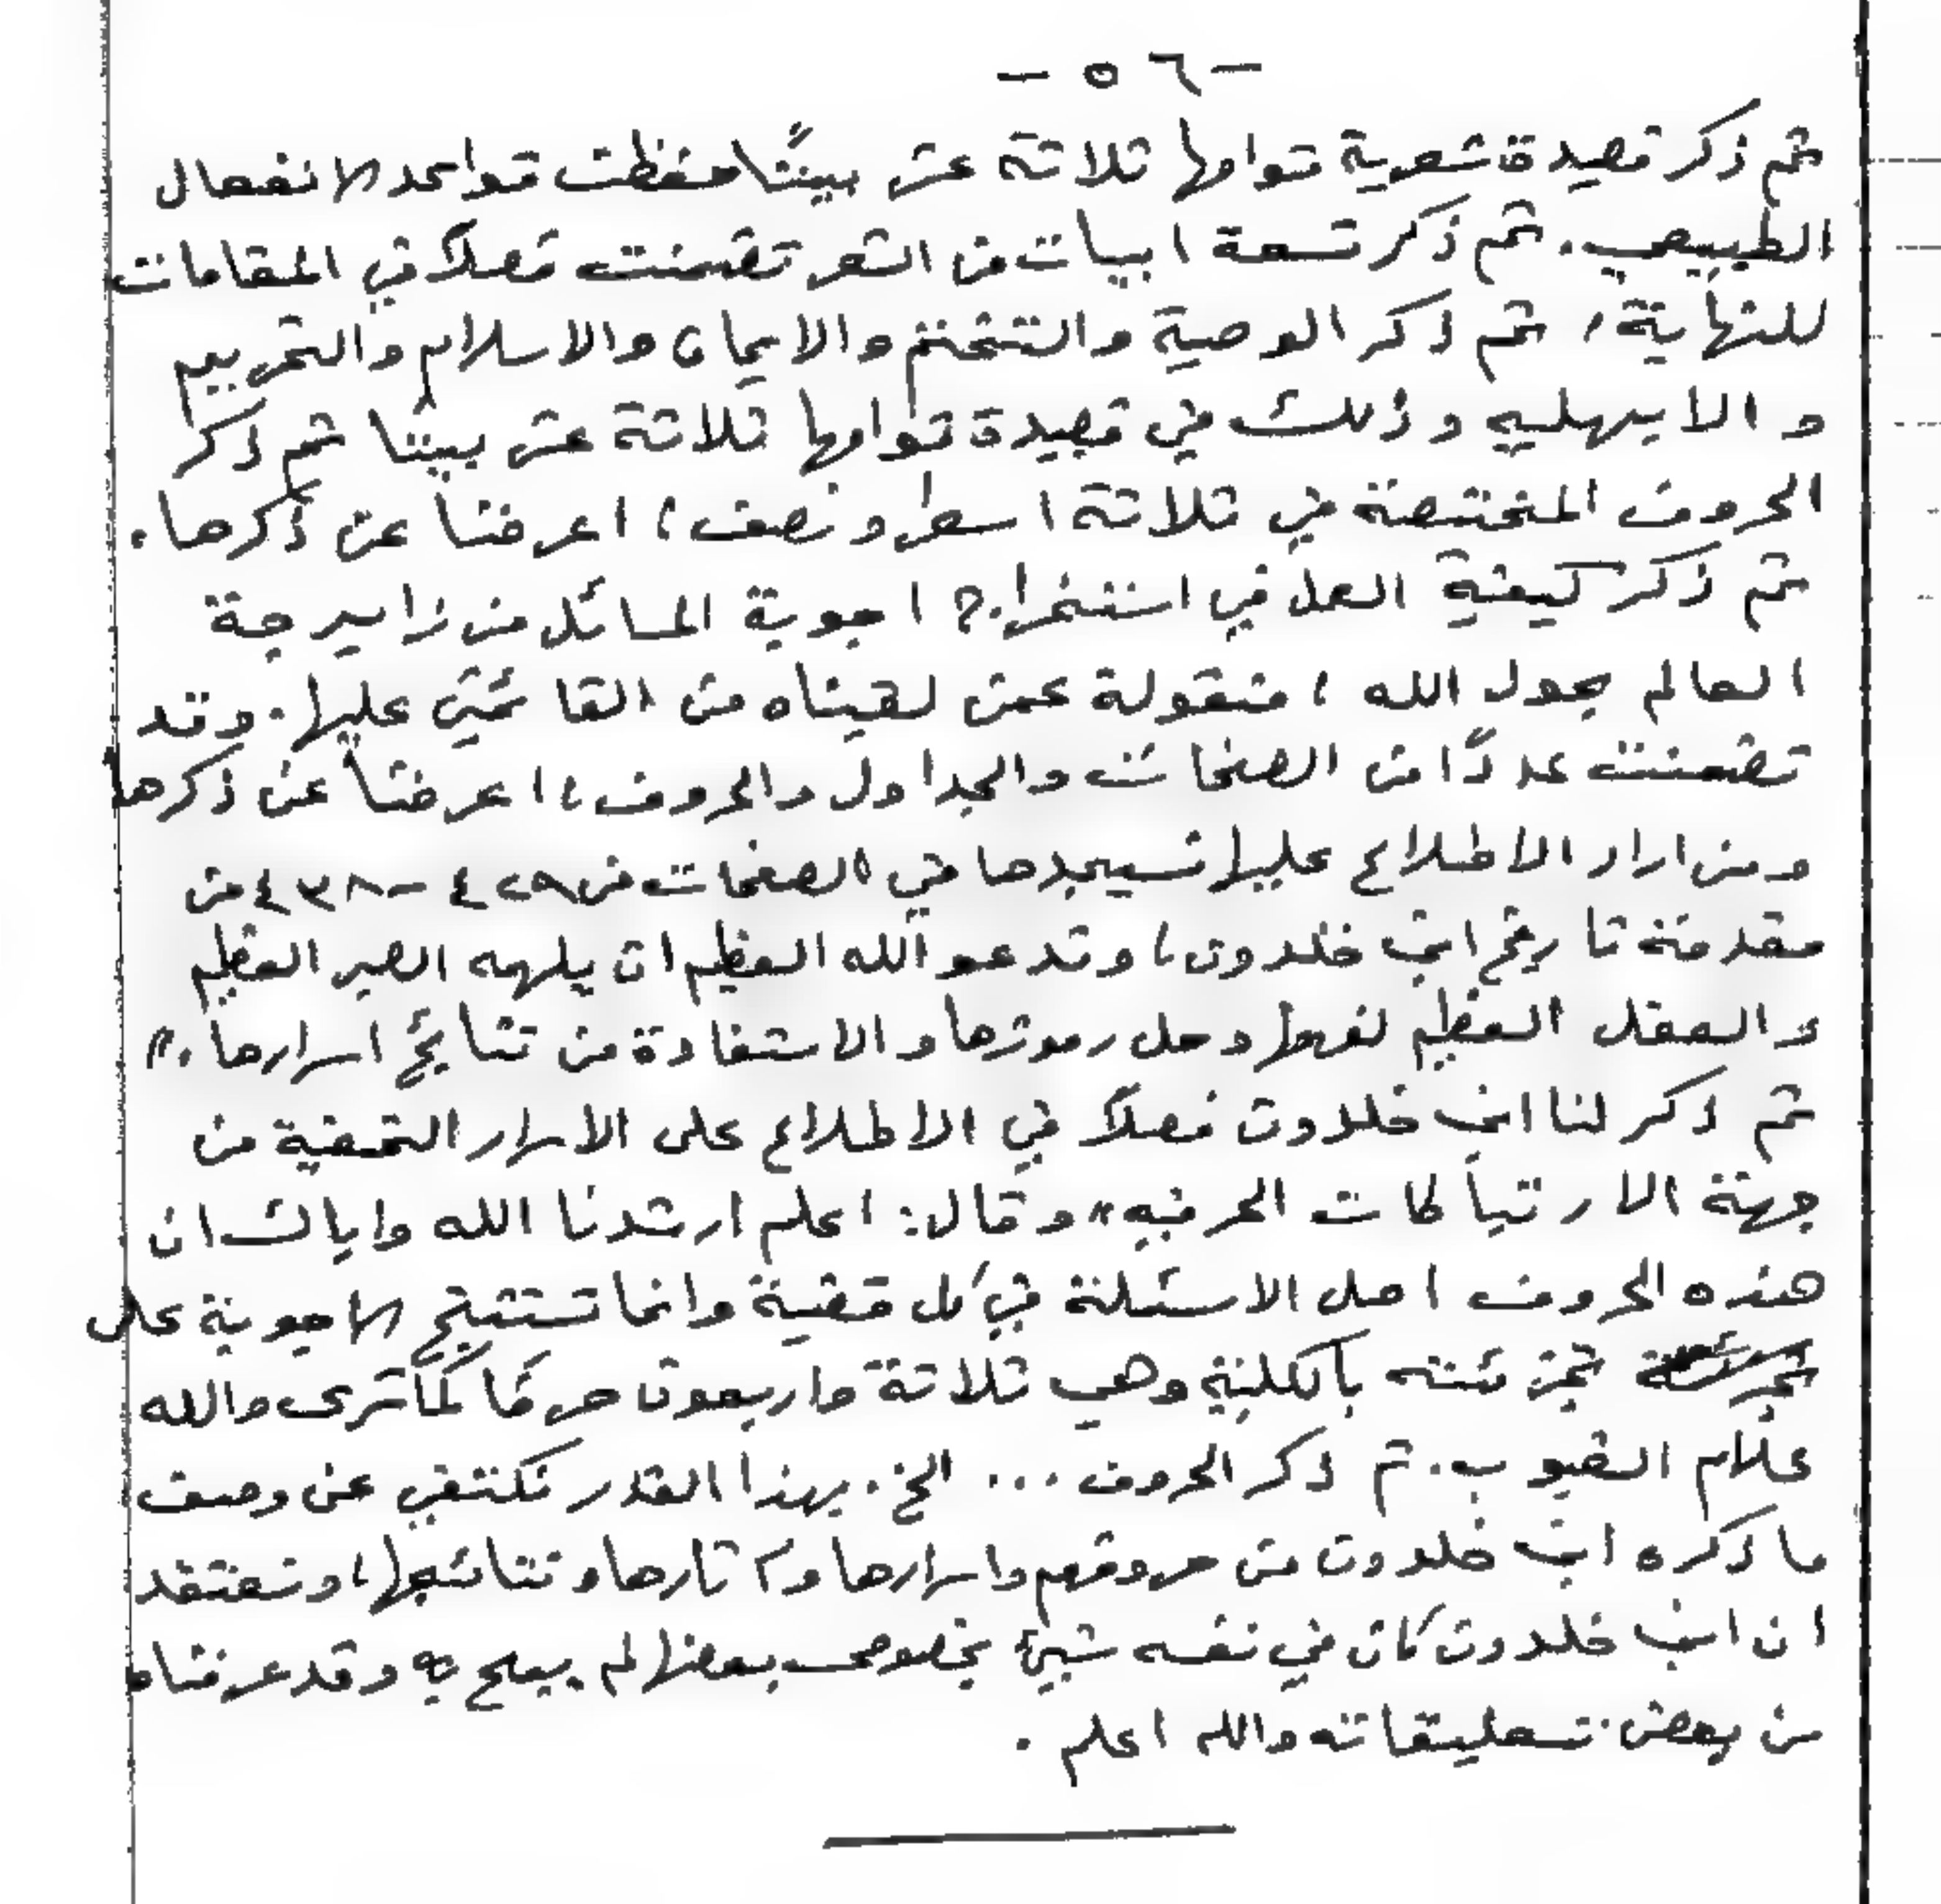 - ٥٦ -
ثم ذكر قصيدة شعرية قوامها ثلاثة عشر بيتًا حفظت قواعد الانفعال
الطبيعي. ثم ذكر تسعة ابيات من الشعر تضمنت فصلاً في المقامات
للنهاية، ثم ذكر الوصية والتختم والايمان والاسلام والتحريم
و الاهليه وذلك في قصيدة قوامها ثلاثة عشر بيتًا ثم ذكر
الحروف المختصة في ثلاثة اسطر ونصف، اعرضنا عن ذكرها.
ثم ذكر كيفية العمل في استخراج اجوبة المسائل من زايرجة
العالم بحول الله، منقولة عمن لقيناه من القائمين عليها. وقد
تضمنت عددًا من الصفحات والجداول والحروف، اعرضنا عن ذكرها
ومن اراد الاطلاع عليها فسيجدها في الصفحات من ٤٢٩ - ٤٣٨ من
مقدمة تاريخ ابن خلدون، وندعو الله العظيم ان يلهمه الصبر العظيم
والعقل العظيم لفهمها وحل رموزها والاستفادة من نتايج اسرارها."
ثم ذكر لنا ابن خلدون فصلاً في الاطلاع على الاسرار الخفية من
جهة الارتباطات الحرفيه" وقال: اعلم ارشدنا الله واياك ان
هذه الحروف اصل الاسئلة في كل قضية وانما تستنتج الاجوبة على
تجزئته بالكلية وهي ثلاثة واربعون حرفًا كما ترى والله
علّام الغيوب. ثم ذكر الحروف ... الخ. بهذا القدر نكتفي عن وصف
ما ذكره ابن خلدون من حروفهم واسرارها وآثارها ونتائجها، ونعتقد
ان ابن خلدون كان في نفسه شيئ بخصوص بعضها لم يبح به وقد عرفناه
من بعض تعليقاته والله اعلم.